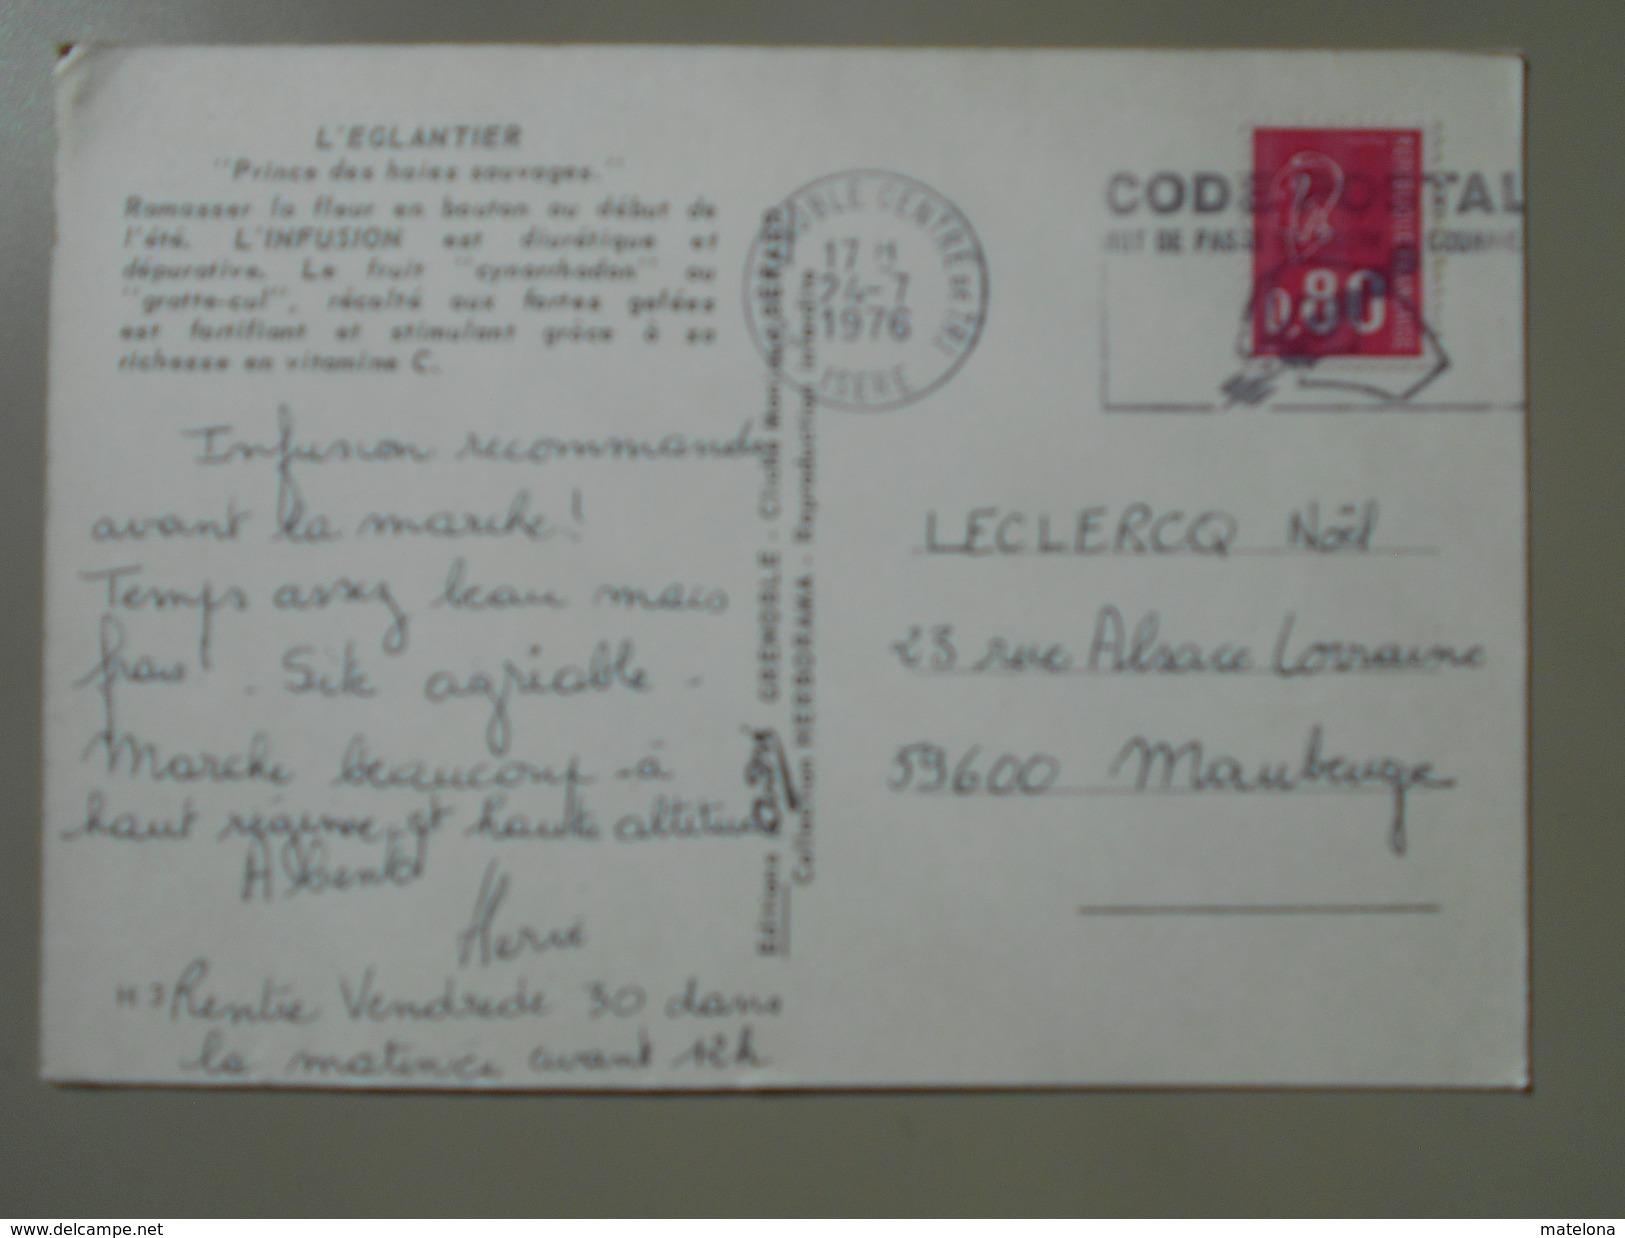 L'EGLANTIER
"Prince des haies sauvages."
Ramasser la fleur en bouton au début de
l'été. L'INFUSION est diurétique et
dépurative. Le fruit "cynorrhodon" ou
"gratte-cul", récolté aux fortes gelées
est fortifiant et stimulant grâce à sa
richesse en vitamine C.
Infusion recommandée
avant la marche!
Temps assez beau mais
frais. Site agréable.
Marche beaucoup à
haut régime et haute altitude
A bientôt
Hervé
H 3
Rentre Vendredi 30 dans
la matinée avant 12h
Editions GRENOBLE - Cliché
Collection HERBORAMA - Reproduction interdite
GRENOBLE CENTRE DE TRI
17 H
24-7
1976
ISERE
CODE POSTAL
MOT DE PASSE
0,80
LECLERCQ Noël
23 rue Alsace Lorraine
59600 Maubeuge
www.delcampe.net
matelona